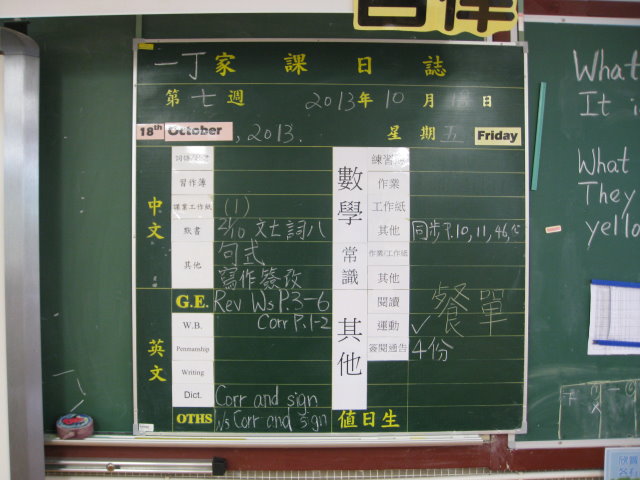 一丁家課日誌
第七週 2013年10月18日
18th October, 2013. 星期五 Friday
中文
習作簿
課業工作紙 (1)
默書 21/10 文士詞八
其他 句式
寫作簽改
英文
G.E. Rev Ws P.3-6
W.B. Corr P.1-2
Penmanship
Writing
Dict. Corr and sign
OTHS Ws Corr and sign
數學
練習簿
作業
工作紙
其他 同步 P.10, 11, 46,
常識
作業/工作紙
其他
其他
閱讀
運動 ✓
餐單
簽閱通告 4份
值日生
What
It i
What
They
yello